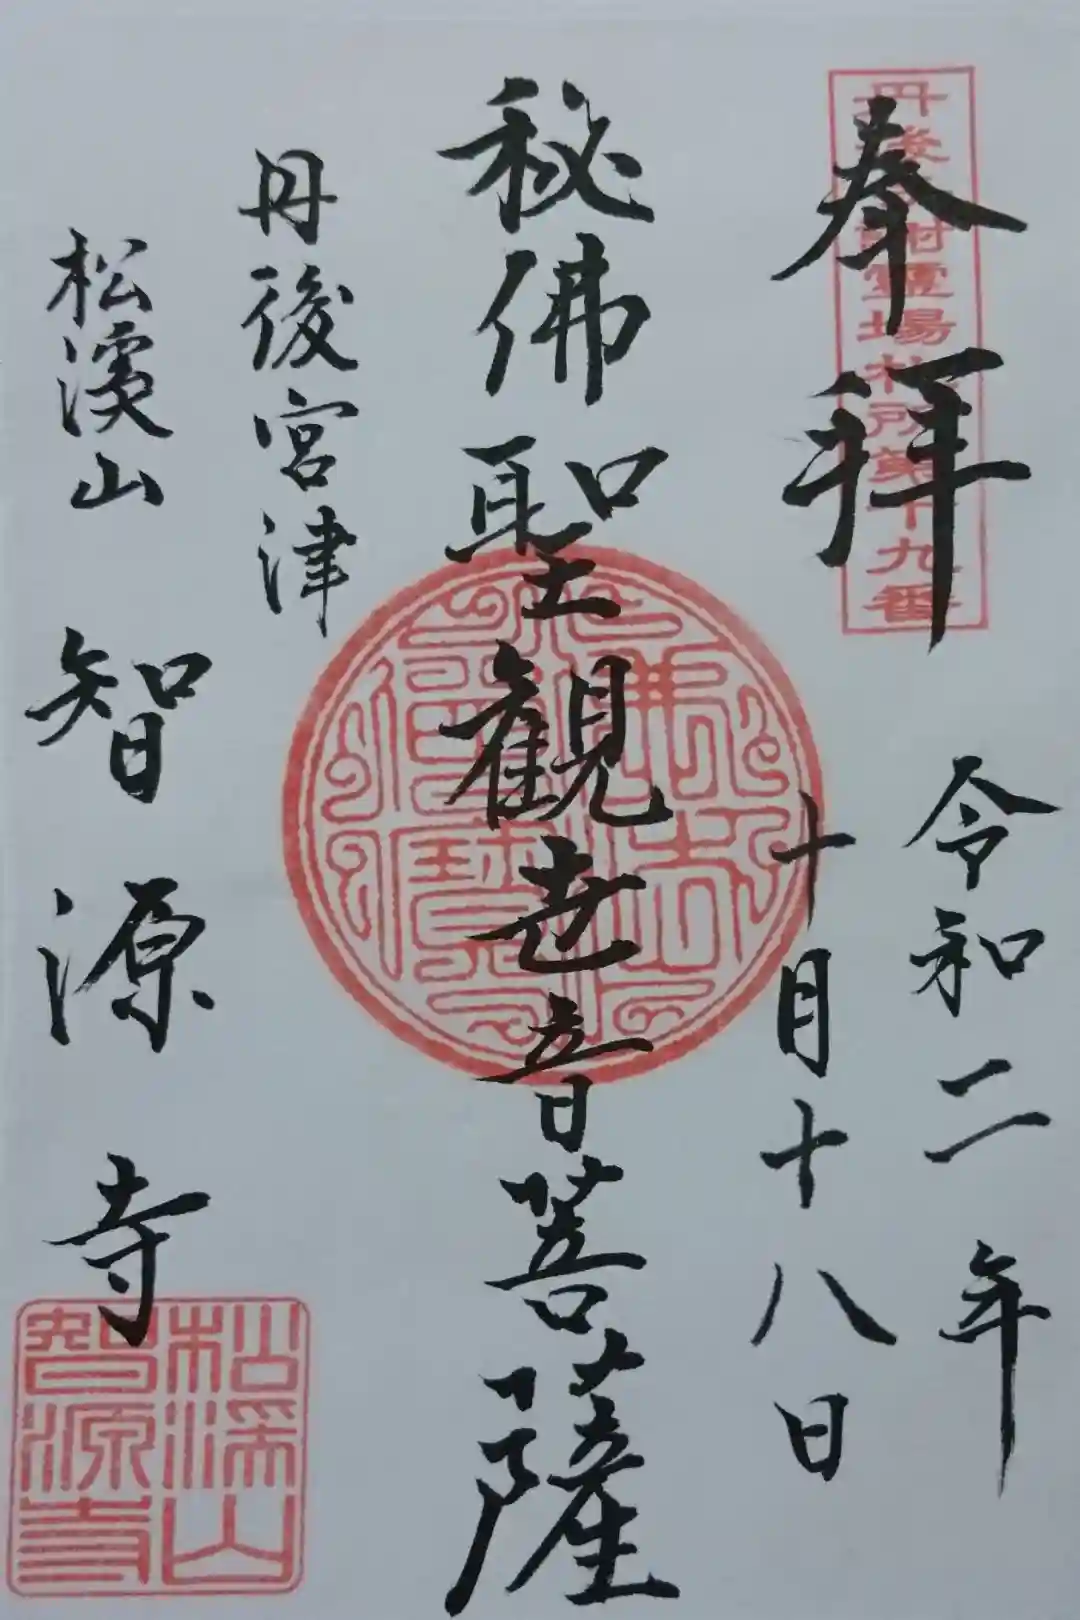 奉拝
丹後 靈場札所第十九番
令和二年
十月十八日
秘佛聖観世音菩薩
佛法僧寶
丹後宮津
松溪山 智源寺
松溪山
智源寺